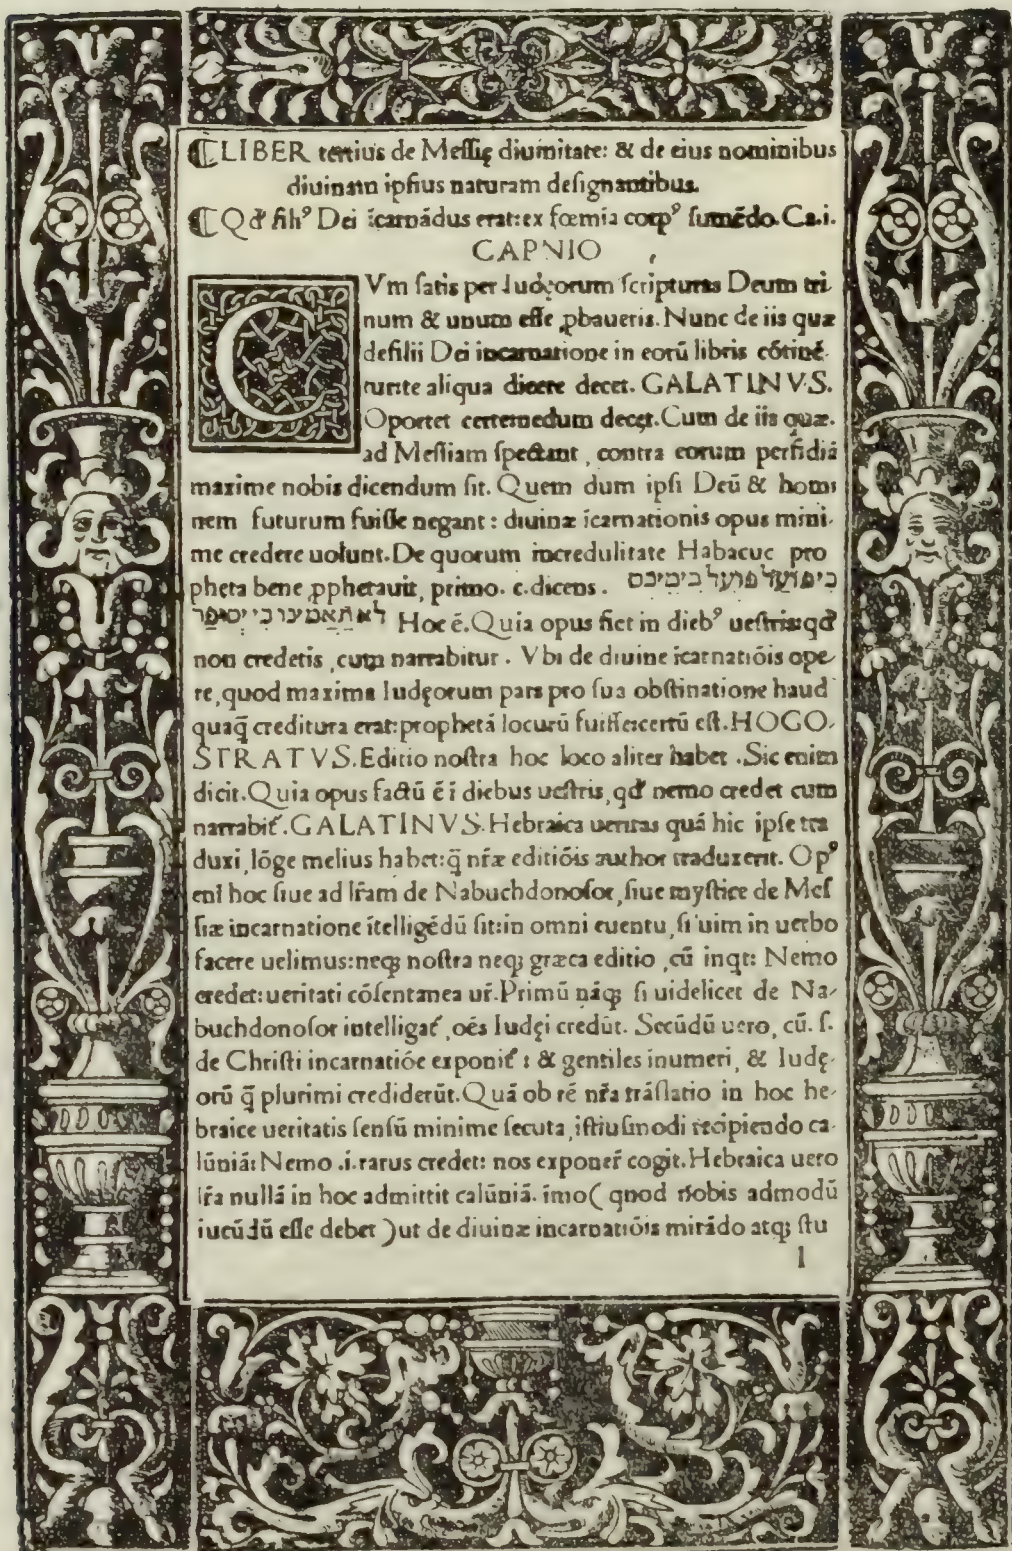 ℄LIBER tertius de Meſſię diuinitate: & de eius nominibus
diuinam ipſius naturam deſignantibus.
℄Qđ filiꝰ Dei īcarnādus erat:ex fœmīa corpꝰ ſumēdo.Ca.i.
CAPNIO
CVm ſatis per Iudęorum ſcripturas Deum tri
num & unum eſſe ꝓbaueris. Nunc de iis quæ
defilii Dei incarnatione in eorū libris cōtinē-
turite aliqua dicere decet. GALATINVS.
Oportet certemedum decet. Cum de iis quæ.
ad Meſſiam ſpectant, contra eorum perfidiā
maxime nobis dicendum ſit. Quem dum ipſi Deū & homi
nem futurum fuiſſe negant: diuinæ īcarnationis opus mini-
me credere uolunt. De quorum incredulitate Habacuc pro
pheta bene ꝓphetauit, primo. c. dicens. כי פועל פועל בימיכם
לא תאמינו כי יסופר Hoc ē. Quia opus fiet in diebꝰ ueſtris:qđ
non credetis, cum narrabitur. Vbi de diuine īcarnatiōis ope-
re, quod maxima Iudęorum pars pro ſua obſtinatione haud
quaq̄ creditura erat:prophetā locutū fuiſſe:certū eſt. HOGO-
STRATVS. Editio noſtra hoc loco aliter habet. Sic enim
dicit. Quia opus factū ē ī diebus ueſtris, qđ nemo credet cum
narrabit᷑. GALATINVS. Hebraica ueritas quā hic ipſe tra
duxi, lōge melius habet: q̄ nr̄æ editiōis author traduxerit. Opꝰ
enī hoc ſiue ad lr̄am de Nabuchdonoſor, ſiue myſtice de Meſ
ſiæ incarnatione ītelligēdū ſit:in omni euentu, ſi uim in uerbo
facere uelimus:neqꝫ noſtra neqꝫ græca editio, cū inqt: Nemo
credet: ueritati cōſentanea ur̄. Primū nāqꝫ ſi uidelicet de Na-
buchdonoſor intelligat᷑, oēs Iudęi credūt. Secūdū uero, cū. ſ.
de Chriſti incarnatiōe exponit᷑: & gentiles inumeri, & Iudę-
orū q̄ plurimi crediderūt. Quā ob rē nr̄a trāſlatio in hoc he-
braice ueritatis ſenſū minime ſecuta, iſtiuſmodi recipiendo ca-
lūniā: Nemo .i. rarus credet: nos exponer̄ cogit. Hebraica uero
lr̄a nullā in hoc admittit calūniā. imo( qnod nobis admodū
iucūdū eſſe debet )ut de diuinæ incarnatiōis mirādo atqꝫ ſtu
l